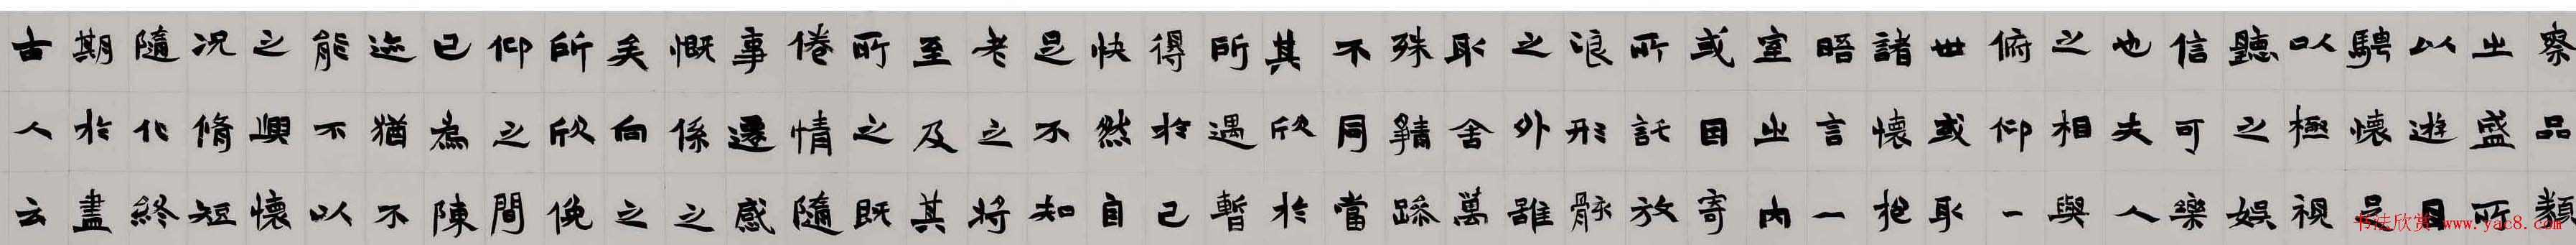 察品類
之盛所
以遊目
騁懷足
以極視
聽之娛
信可樂
也夫人
之相與
俯仰一
世或取
諸懷抱
晤言一
室之内
或因寄
所託放
浪形骸
之外雖
取舍萬
殊静躁
不同當
其欣於
所遇暫
得於己
快然自
足不知
老之将
至及其
所之既
倦情隨
事遷感
慨係之
矣向之
所欣俛
仰之間
已為陳
迹猶不
能不以
之興懷
况脩短
隨化終
期於盡
古人云
书法欣赏www.yac8.com